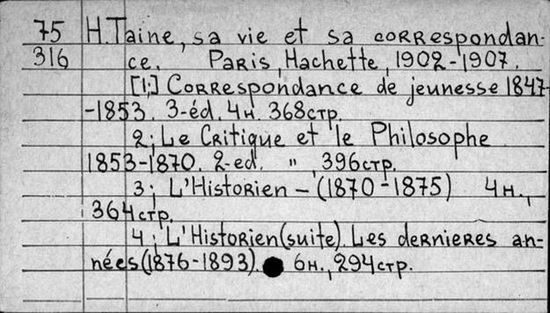 75 H. Taine, sa vie et sa correspondan-
316 ce. Paris, Hachette, 1902-1907.
[1;] Correspondance de jeunesse 1847-
-1853. 3-éd. 4н. 368стр.
2; Le Critique et le Philosophe
1853-1870. 2-ed. " , 396стр.
3; L'Historien - (1870-1875) 4н.,
364стр.
4; L'Historien (suite). Les dernieres an-
nées (1876-1893). 6н., 294стр.